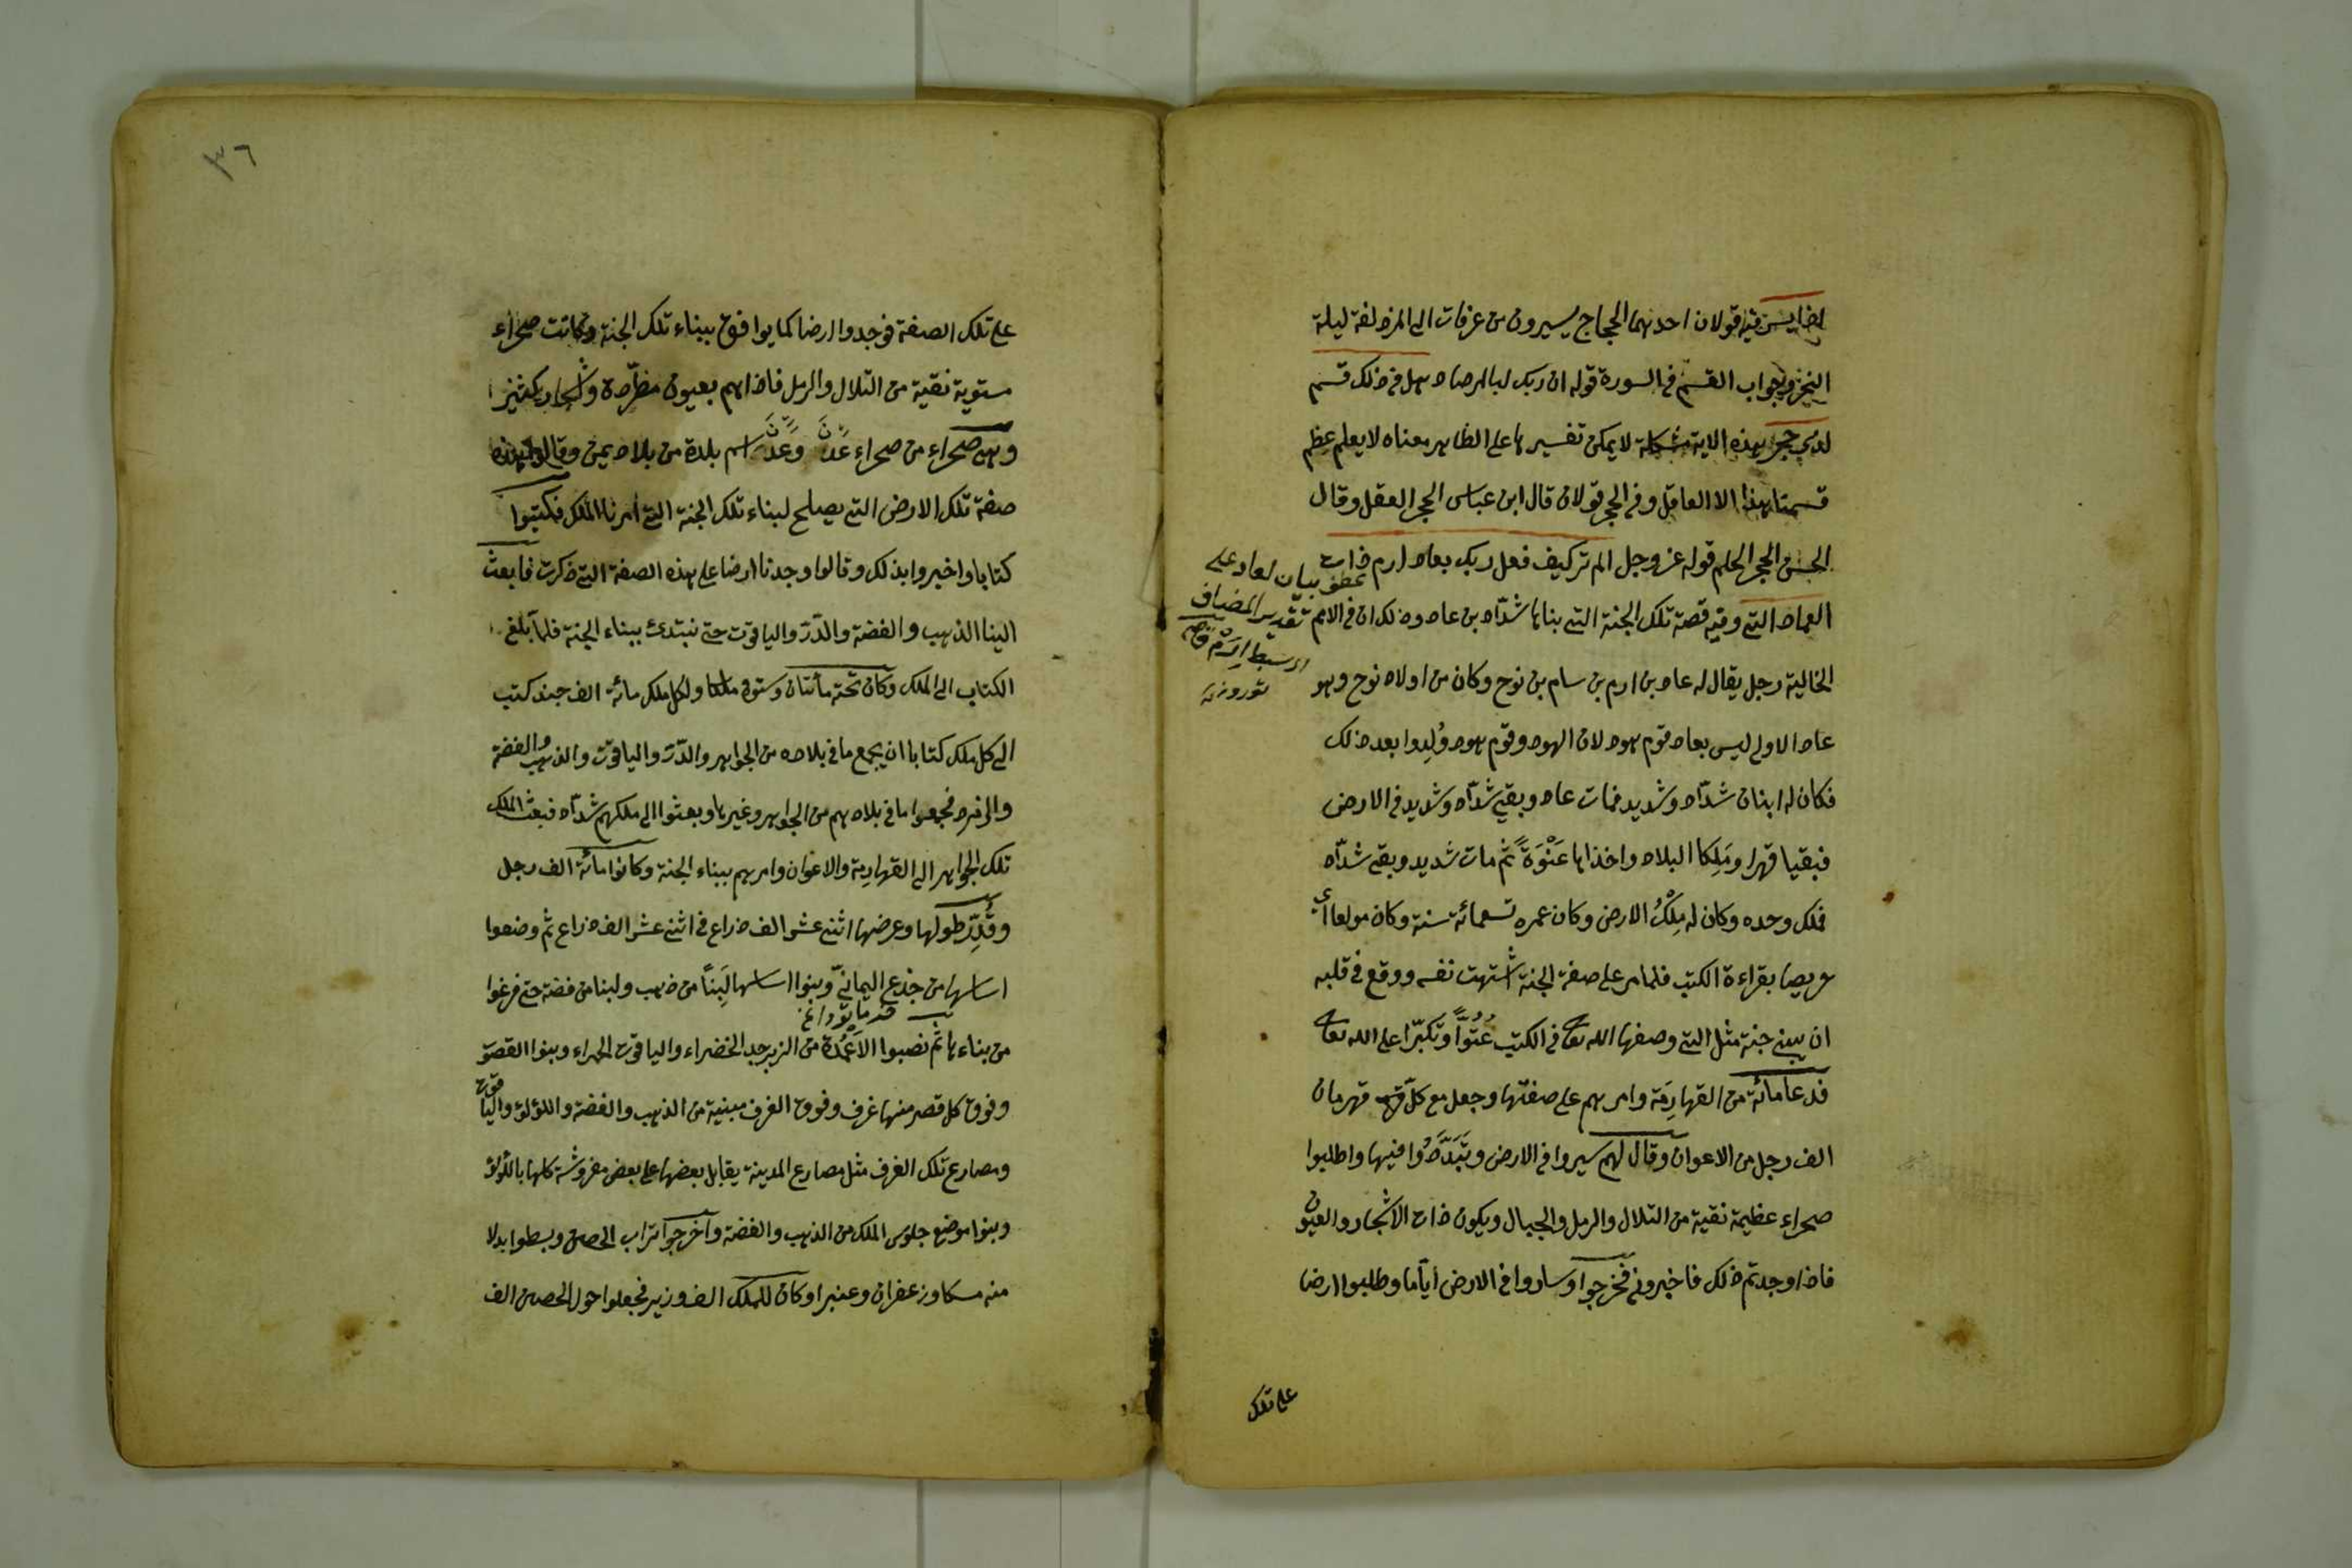 اذا يسر فيه قولان احدهما الحجاج يسيرون من عرفات الى المزدلفة ليلة
النحر وجواب القسم في السورة قوله ان ربك لبالمرصاد هل في ذلك قسم
لذي حجر هذه الاية مشكلة لا يمكن تفسيرها على الظاهر معناه لا يعلم عظم
قسمنا بهذا الا العاقل وفي الحجر قولان قال ابن عباس الحجر العقل وقال
الحسن الحجر الحلم قوله عز وجل الم تر كيف فعل ربك بعاد ارم ذات
عطف بيان لعاد على
تقدير المضاف
العماد التي وفيه قصة تلك الجنة التي بناها شدّاد بن عاد وذلك ان في الامم
الخالية رجل يقال له عاد بن ارم بن سام بن نوح وكان من اولاد نوح وهو
عاد الاولى ليس بعاد قوم هود لان الهود وقوم هود وُلِدوا بعد ذلك
فكان له ابنان شدّاد وشديد فمات عاد وبقي شدّاد وشديد في الارض
فبقيا قهرا ومَلِكا البلاد واخذاها عَنْوَةً ثم مات شديد وبقي شدّاد
فملك وحده وكان له مِلْكُ الارض وكان عمره تسعمائة سنة وكان مولعا اي
حريصا بقراءة الكتب فلما مر على صفة الجنة اشتهت نفسه ووقع في قلبه
ان يبني جنة مثل التي وصفها الله تعا في الكتب عُتُوًّا وتكبّرا على الله تعا
فدعا مائة من القهارِمَة وامرهم على صفتها وجعل مع كلّ قهرمان
الف رجل من الاعوان وقال لهم سيروا في الارض وتَبَدَّدُوا فيها واطلبوا
صحراء عظيمة نقية من التلال والرمل والجبال ويكون ذات الاشجار والعيون
فاذا وجدتم ذلك فاخبروني فخرجوا وساروا في الارض ايّاما وطلبوا ارضا
على تلك
٣٦
على تلك الصفة فوجدوا ارضا كما يوافق ببناء تلك الجنة وكانت صحراء
مستوية نقية من التلال والرمل فاذا هم بعيون مطّردة واشجار كثيرا
وهي صحراء من صحراء عَدَن وعَدَن اسم بلدة من بلاد يمن وقالوا هذه
صفة تلك الارض التي يصلح لبناء تلك الجنة التي امرنا الملك فكتبوا
كتابا واخبروا بذلك وقالوا وجدنا ارضا على هذه الصفة التي ذكرت فابعث
الينا الذهب والفضة والدّرّ والياقوت حتى نبتدئ ببناء الجنة فلما بلغ
الكتاب الى الملك وكان تحته مأتان وستون ملكا ولكل ملك مائة الف جند كتب
الى كل ملك كتابا ان يجمع ما في بلاده من الجواهر والدّرّ والياقوت والذهب والفضة
فجمعوا ما في بلادهم من الجواهر وغيرها وبعثوا الى ملكهم شدّاد فبعث الملك
تلك الجواهر الى القهارِمة والاعوان وامرهم ببناء الجنة وكانوا مائة الف رجل
وقُدِّر طولها وعرضها اثني عشر الف ذراع في اثني عشر الف ذراع ثم وضعوا
اساسها من جذع اليمانيّ وبنوا اساسها لَبِنًا من ذهب ولبنا من فضة حتى فرغوا
من بناءها ثم نصبوا الاعمدة من الزبرجد الخضراء والياقوت الحمراء وبنوا القصور
وفوق كل قصر منها غرف وفوق الغرف مبنية من الذهب والفضة واللؤلؤ والياقوت
ومصارع تلك الغرف مثل مصارع المدينة يقابل بعضها على بعض مفروشة كلها باللؤلؤ
وبنوا موضع جلوس الملك من الذهب والفضة واخرجوا تراب الحصن وبسطوا بدلا
منه مسكا وزعفران وعنبرا وكان للملك الف وزير فجعلوا حول الحصن الف